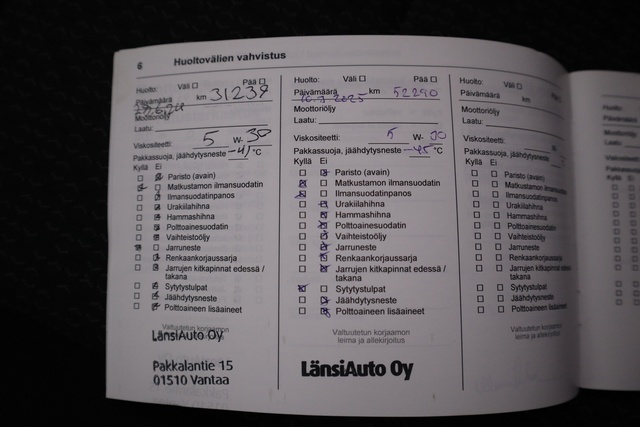 6 Huoltovälien vahvistus
Huolto: Väli Pää
Päivämäärä km 31238
Moottoriöljy
Laatu:
Viskositeetti: 5 W- 30
Pakkassuoja, jäähdytysneste -41 °C
Kyllä Ei
Paristo (avain)
Matkustamon ilmansuodatin
Ilmansuodatinpanos
Urakiilahihna
Hammashihna
Polttoainesuodatin
Vaihteistoöljy
Jarruneste
Renkaankorjaussarja
Jarrujen kitkapinnat edessä /
takana
Sytytystulpat
Jäähdytysneste
Polttoaineen lisäaineet
Valtuutetun korjaamon
LänsiAuto Oy
Pakkalantie 15
01510 Vantaa
Huolto: Väli Pää
Päivämäärä km 52290
Moottoriöljy
Laatu:
Viskositeetti: 5 W- 30
Pakkassuoja, jäähdytysneste -45 °C
Kyllä Ei
Paristo (avain)
Matkustamon ilmansuodatin
Ilmansuodatinpanos
Urakiilahihna
Hammashihna
Polttoainesuodatin
Vaihteistoöljy
Jarruneste
Renkaankorjaussarja
Jarrujen kitkapinnat edessä /
takana
Sytytystulpat
Jäähdytysneste
Polttoaineen lisäaineet
Valtuutetun korjaamon
leima ja allekirjoitus
LänsiAuto Oy
Huolto: Väli Pää
Päivämäärä km
Moottoriöljy
Laatu:
Viskositeetti:
Pakkassuoja, jäähdytysneste
Kyllä Ei
Paristo (avain)
Matkustamon ilmansuodatin
Ilmansuodatinpanos
Urakiilahihna
Hammashihna
Polttoainesuodatin
Vaihteistoöljy
Jarruneste
Renkaankorjaussarja
Jarrujen kitkapinnat edessä /
takana
Sytytystulpat
Jäähdytysneste
Polttoaineen lisäaineet
Valtuutetun korjaamon
leima ja allekirjoitus